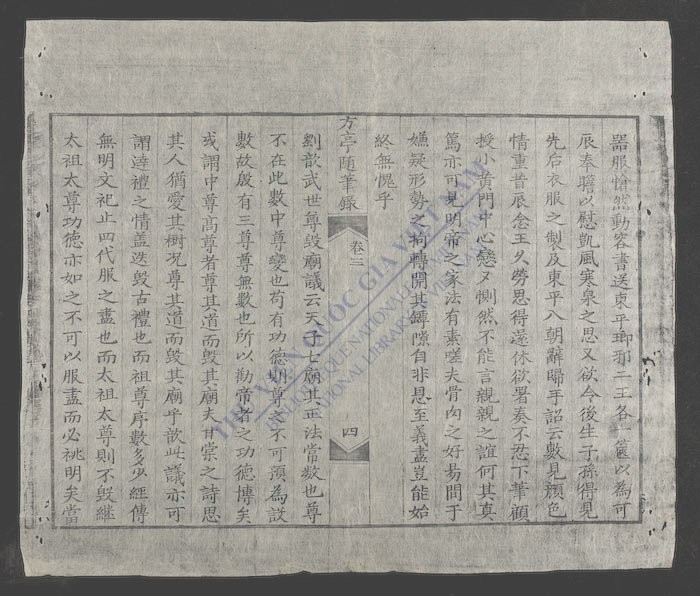 器服愴然動容書送東平瑯琊二王各一篋以為可
辰奉瞻以慰凱風寒泉之思又欲令後生子孫得見
先后衣服之製及東平入朝辭歸手詔云數見顏色
情重昔辰念王久勞思得還休欲署奏不忍下筆顧
授小黃門中心戀戀惻然不能言親親之誼何其真
篤亦可見明帝之家法有素嗟夫骨肉之好易間于
嫌疑形勢之拘轉開其罅隙自非恩至義盡豈能始
終無愧乎
方亭隨筆錄 卷三 四
劉歆武世尊毀廟議云天子七廟其正法常數也尊
不在此數中尊變也苟有功德則尊之不可預為設
數故殷有三尊尊無數也所以勸帝者之功德博矣
或謂中尊高尊者尊其道而毀其廟夫甘棠之詩思
其人猶愛其樹况尊其道而毀其廟乎歆此議亦可
謂達禮之情蓋迭毀古禮也而祖尊序數多少經傳
無明文祀止四代服之盡也而太祖太尊則不毀継
太祖太尊功德亦如之不可以服盡而必祧明矣當
THƯ VIỆN QUỐC GIA VIỆT NAM
BIBLIOTHEQUE NATIONALE DU VIETNAM
NATIONAL LIBRARY OF VIETNAM